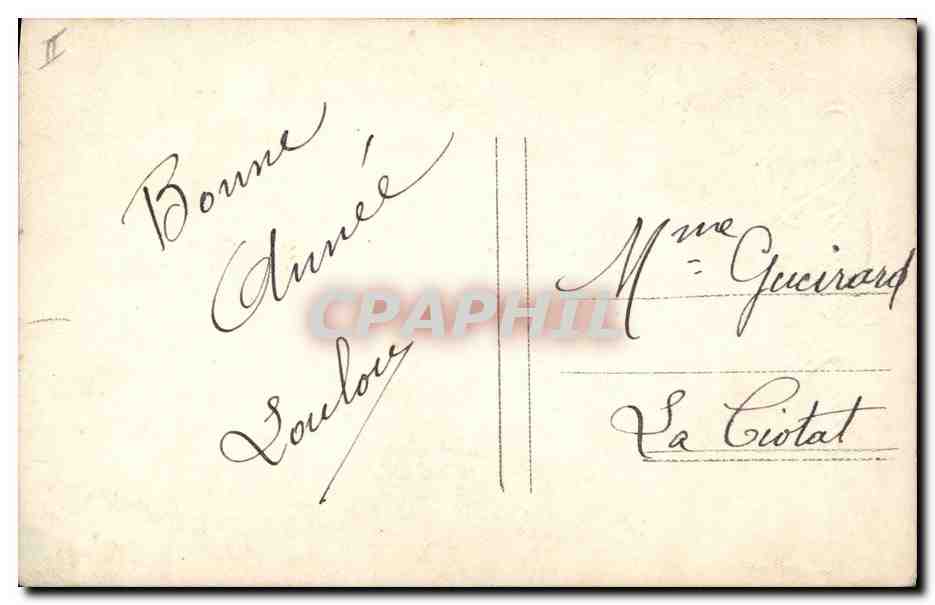 II
Bonne
Année
Loulou
Mme Gueirard
La Ciotat
CPAPHIL